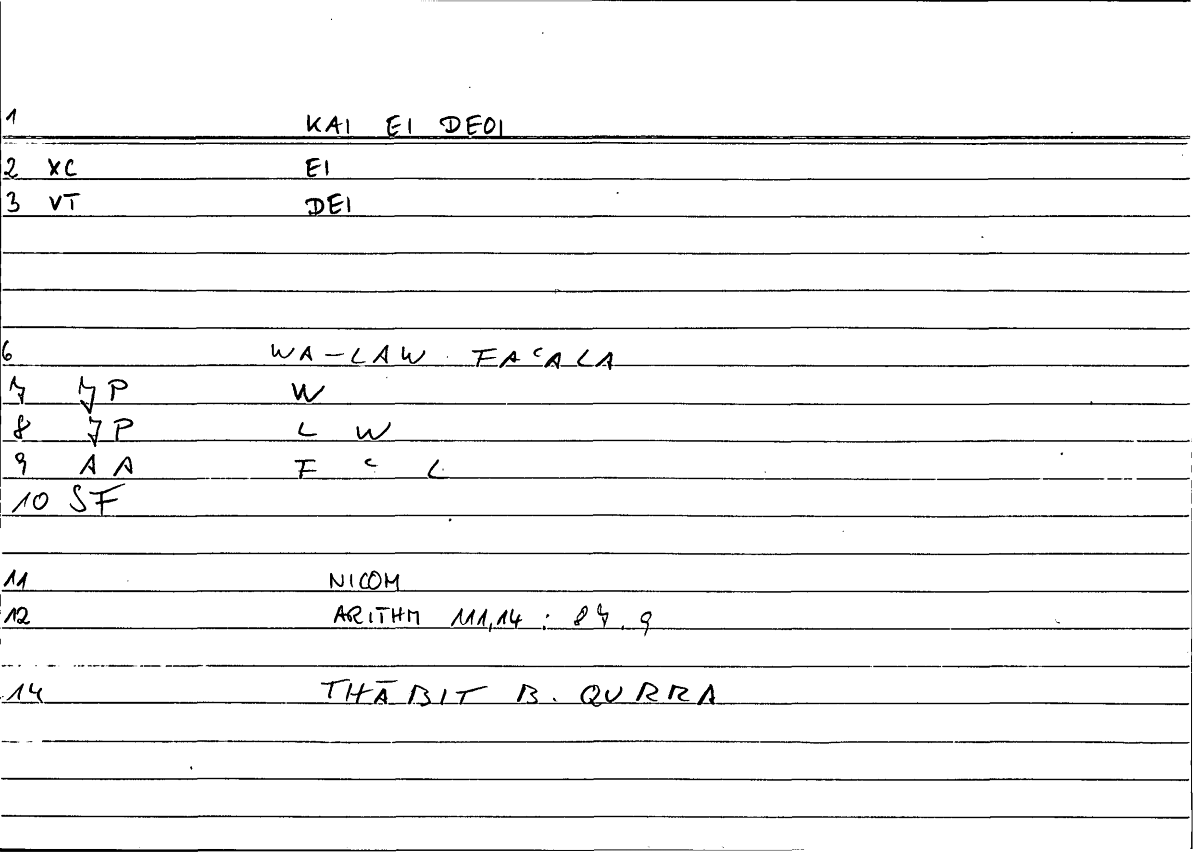 1 KAI EI DEOI
2 XC EI
3 VT DEI
6 WA-LAW FAᶜALA
7 JP W
8 JP L W
9 AA F ᶜ L
10 SF
11 NICOM
12 ARITHM 111,14 : 87.9
14 THĀBIT B. QURRA